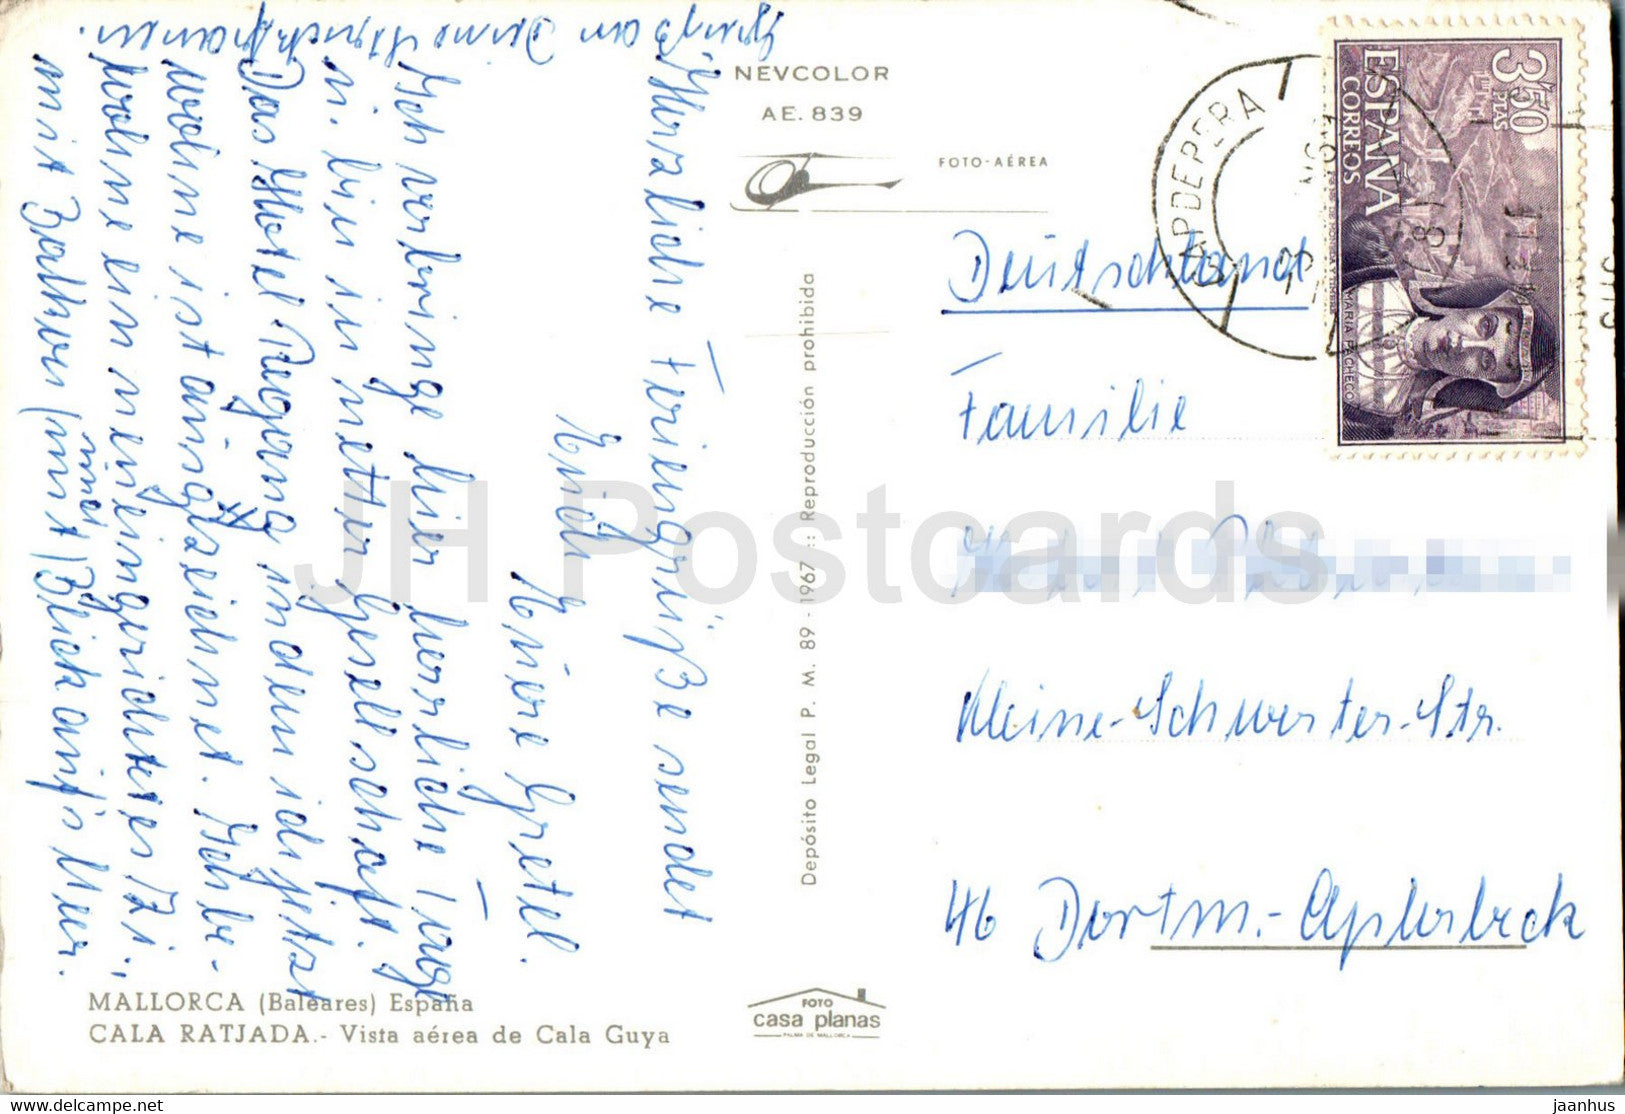 Gruß an Deine
Herzliche Feriengrüße sendet
Euch Eure Gretel.
Ich verbringe hier herrliche Tage
u. bin in netter Gesellschaft.
Das Hotel Regana in dem ich jetzt
wohne ist ausgezeichnet. Ich be-
wohne ein neu eingerichtetes Zi.,
mit Balkon (mit Blick auf's Meer.
NEVCOLOR
AE. 839
FOTO-AÉREA
Depósito Legal P. M. 89 - 1967 :: Reproducción prohibida
CAPDEPERA
3'50 PTAS
ESPAÑA
CORREOS
MARIA PACHECO
Deutschland
Familie
Kleine-Schwerter-Str.
46 Dortm.-Aplerbeck
MALLORCA (Baleares) España
CALA RATJADA.- Vista aérea de Cala Guya
FOTO
casa planas
PALMA DE MALLORCA
JH Postcards
www.delcampe.net
jaanhus